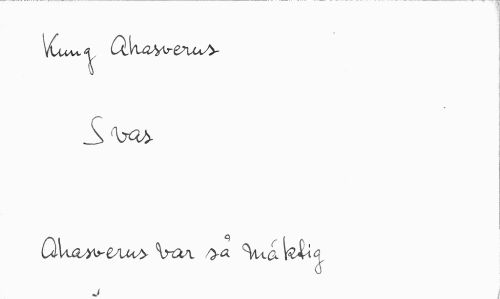 Kung Ahasverus
Svas
Ahasverus var så mäktig